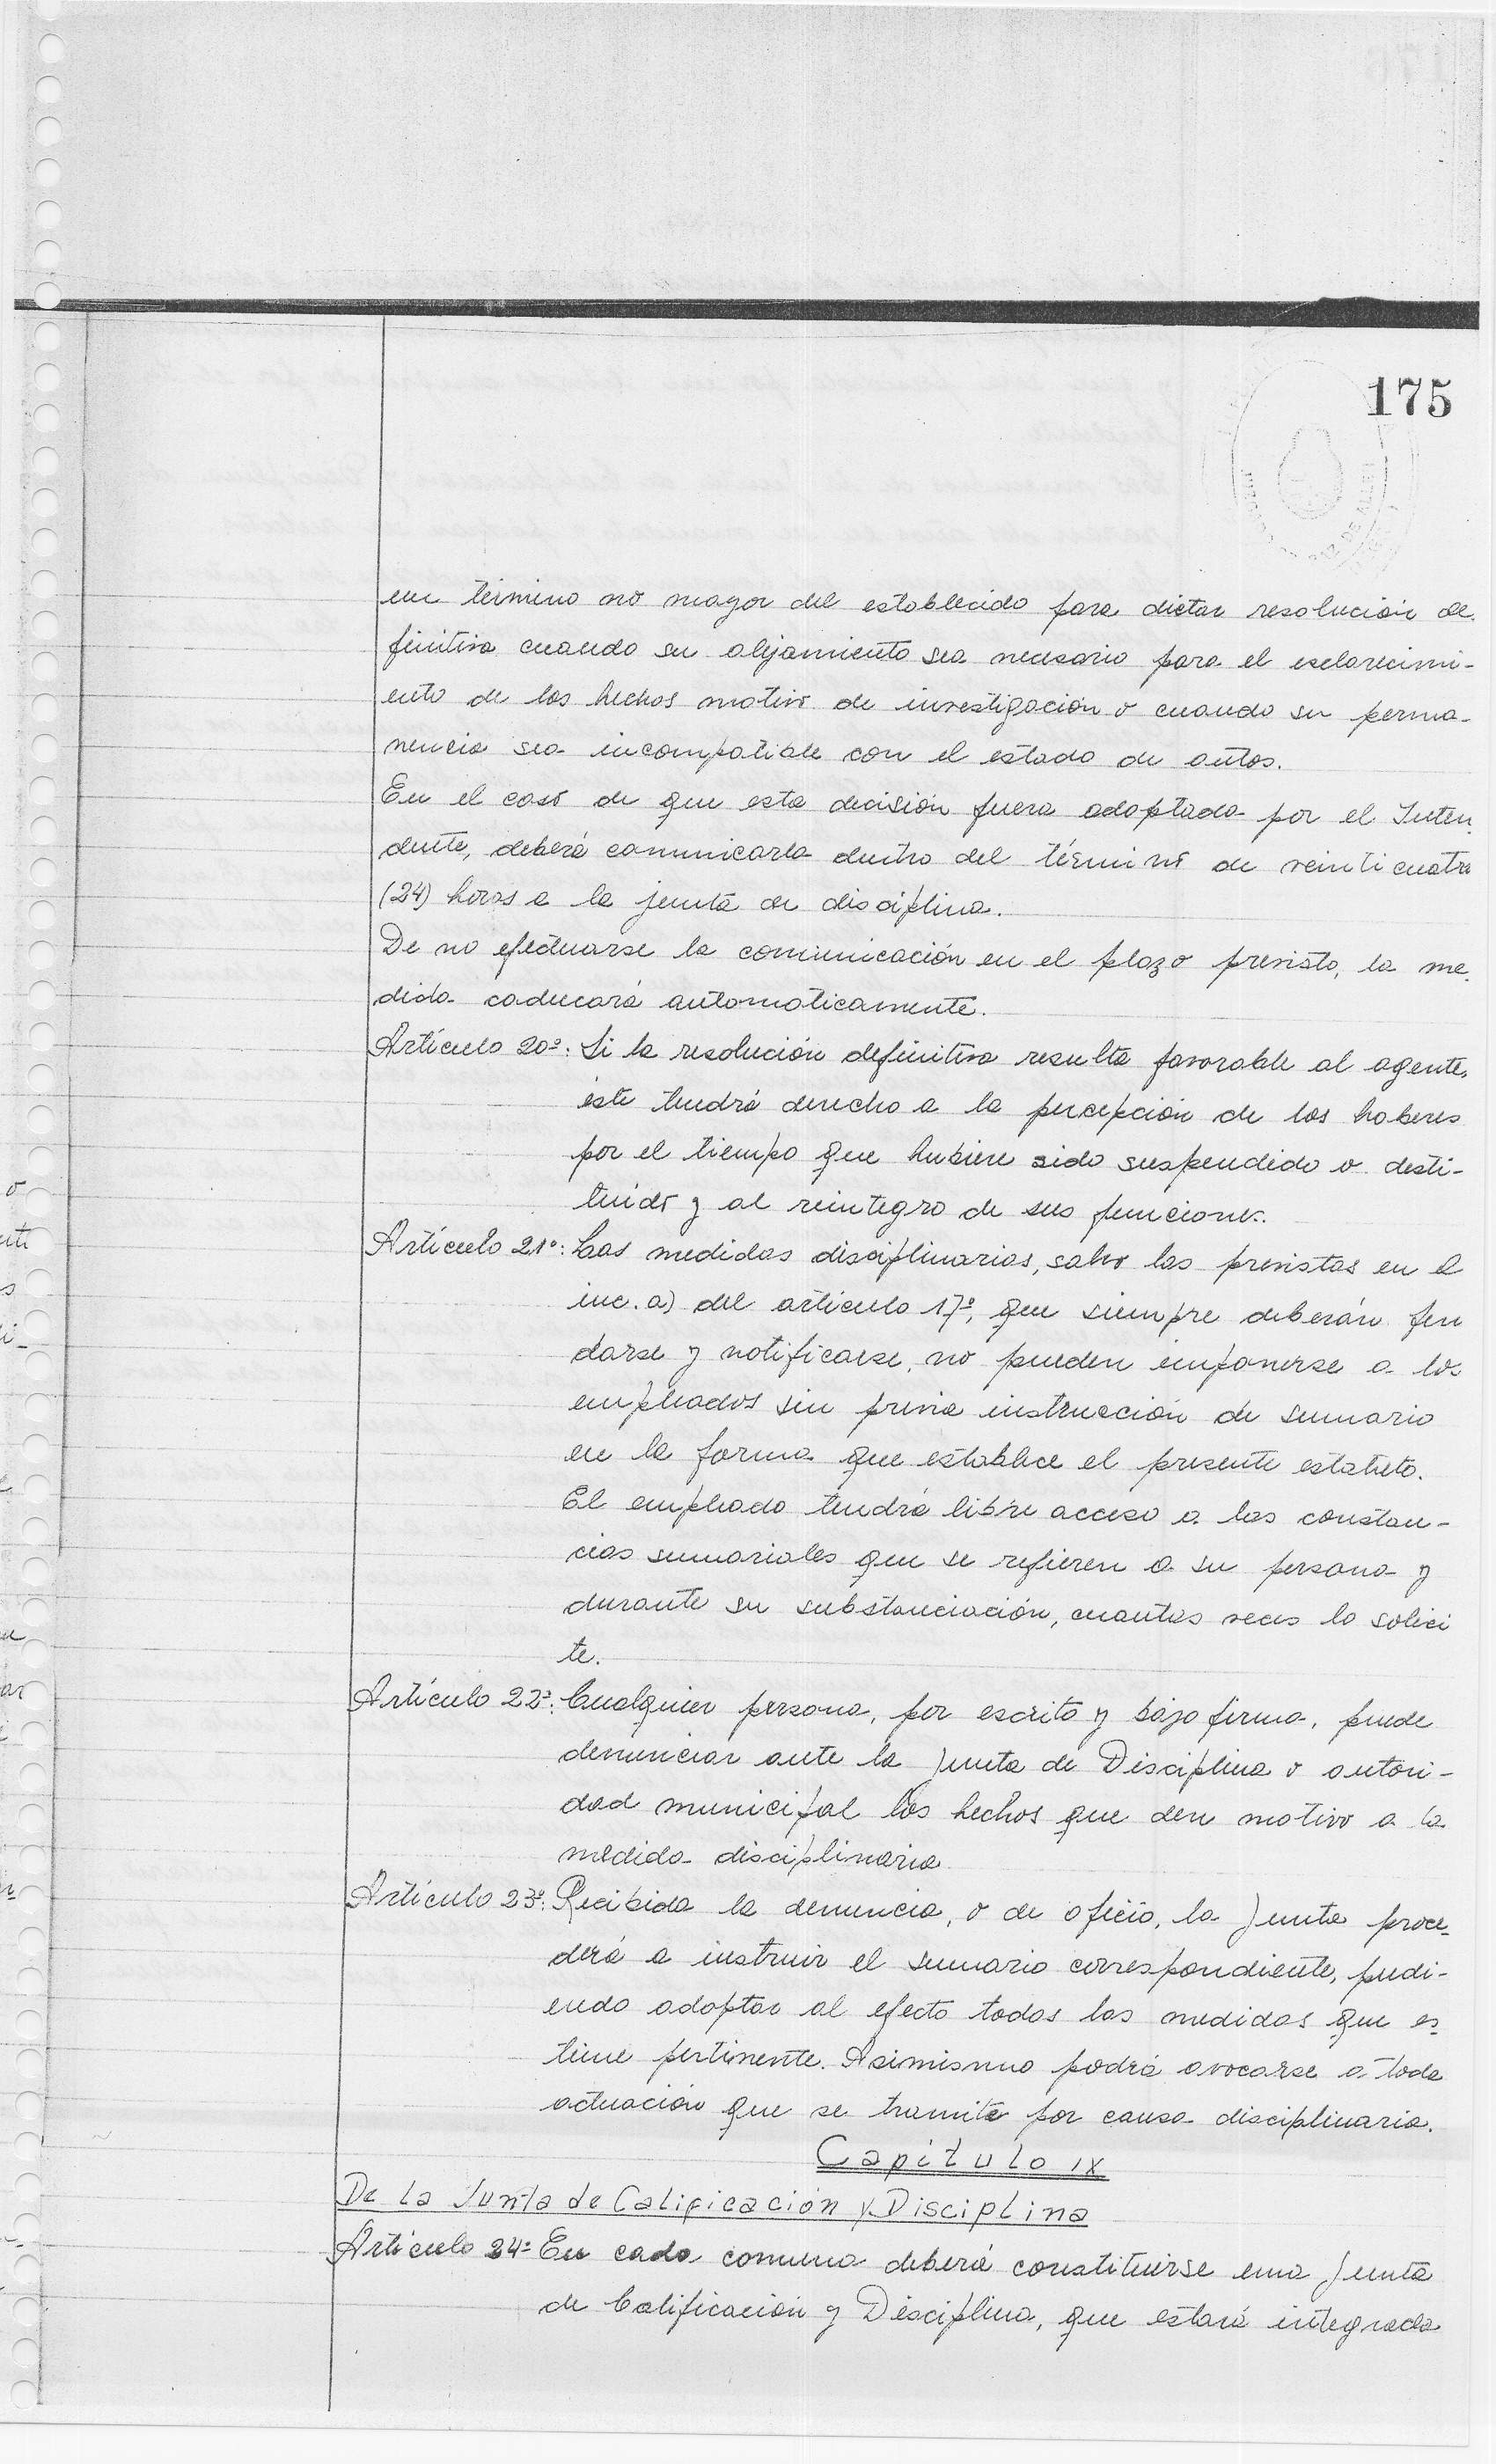 175
un término no mayor del establecido para dictar resolución de-
finitiva cuando su alejamiento sea necesario para el esclarecimi-
ento de los hechos motivo de investigación o cuando su perma-
nencia sea incompatible con el estado de autos.
En el caso de que esta decisión fuera adoptada por el Inten-
dente, deberá comunicarla dentro del término de veinticuatro
(24) horas a la junta de disciplina.
De no efectuarse la comunicación en el plazo previsto, la me-
dida caducará automáticamente.
Artículo 20º: Si la resolución definitiva resulta favorable al agente,
éste tendrá derecho a la percepción de los haberes
por el tiempo que hubiere sido suspendido o desti-
tuído y al reintegro de sus funciones.
Artículo 21º: Las medidas disciplinarias, salvo las previstas en el
inc. a) del artículo 17º, que siempre deberán fun
darse y notificarse, no pueden imponerse a los
empleados sin previa instrucción de sumario
en la forma que establece el presente estatuto.
El empleado tendrá libre acceso a las constan-
cias sumariales que se refieren a su persona y
durante su substanciación, cuantas veces lo solici
te.
Artículo 22º: Cualquier persona, por escrito y bajo firma, puede
denunciar ante la Junta de Disciplina o autori-
dad municipal los hechos que den motivo a la
medida disciplinaria
Artículo 23º: Recibida la denuncia, o de oficio, la Junta proce-
derá a instruir el sumario correspondiente, pudi-
endo adoptar al efecto todas las medidas que es-
time pertinente. Asimismo podrá avocarse a toda
actuación que se tramite por causa disciplinaria.
Capítulo IX
De la Junta de Calificación y Disciplina
Artículo 24º En cada comuna deberá constituirse una Junta
de Calificación y Disciplina, que estará integrada